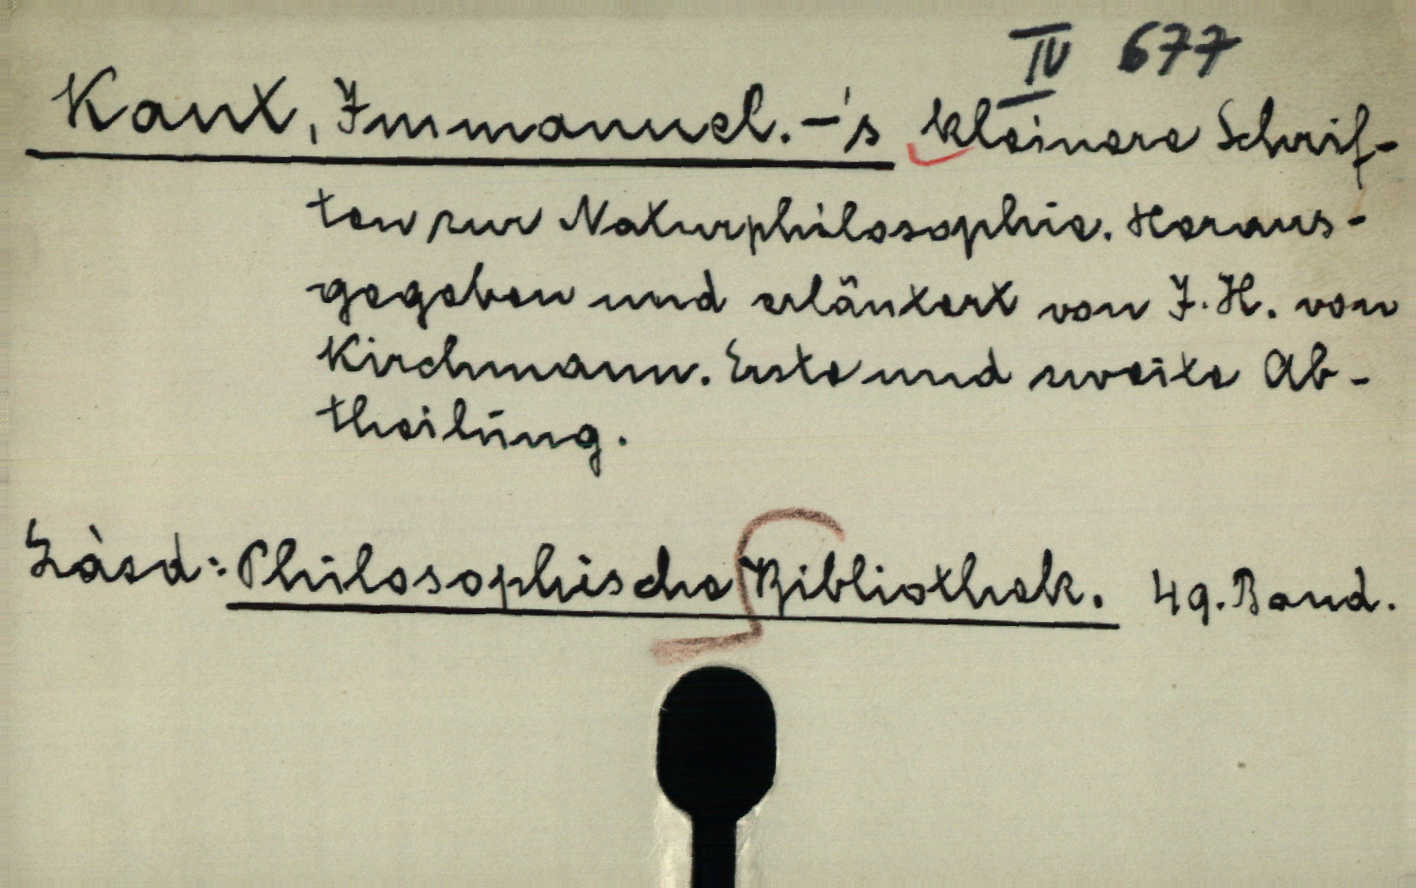 IV 677
Kant, Immanuel. –'s kleinere Schrif-
ten zur Naturphilosophie. Heraus-
gegeben und erläutert von J. H. von
Kirchmann. Erste und zweite Ab-
theilung.
Lásd: Philosophische Bibliothek. 49. Band.